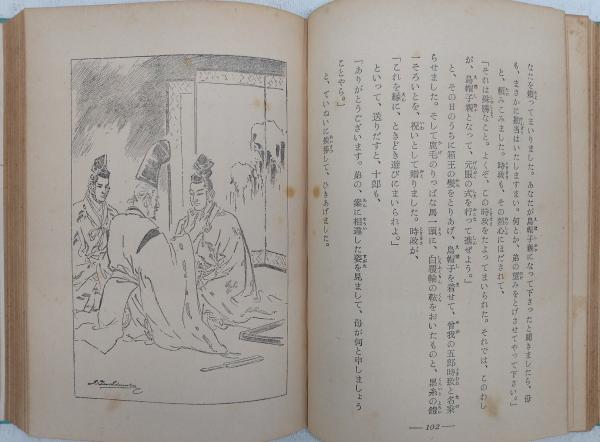 なたを頼ってまいりました。あなたが烏帽子親になって下さったと聞きましたら、母
も、まさかに勘当はいたしますまい。何とか、弟の望みをとげさせてやって下さい。」
と、頼みこみました。時政も、その熱心にほだされて、
「それは殊勝なこと。よくぞ、この時政をたよってまいられた。それでは、このわし
が、烏帽子親となって、元服の式を行って進ぜよう。」
と、その日のうちに箱王の髪をとりあげ、烏帽子を着せて、曾我の五郎時致と名乗
らせました。そして鹿毛のりっぱな馬一頭に、白覆輪の鞍をおいたものと、黒糸の鎧
一そろいとを、祝いとして贈りました。時政が、
「これを縁に、ときどき遊びにまいられよ。」
といって、送りだすと、十郎も、
「ありがとうございます。弟の、案に相違した姿を見まして、母が何と申しましょう
ことやら。」
と、ていねいに挨拶して、ひきあげました。
— 102 —